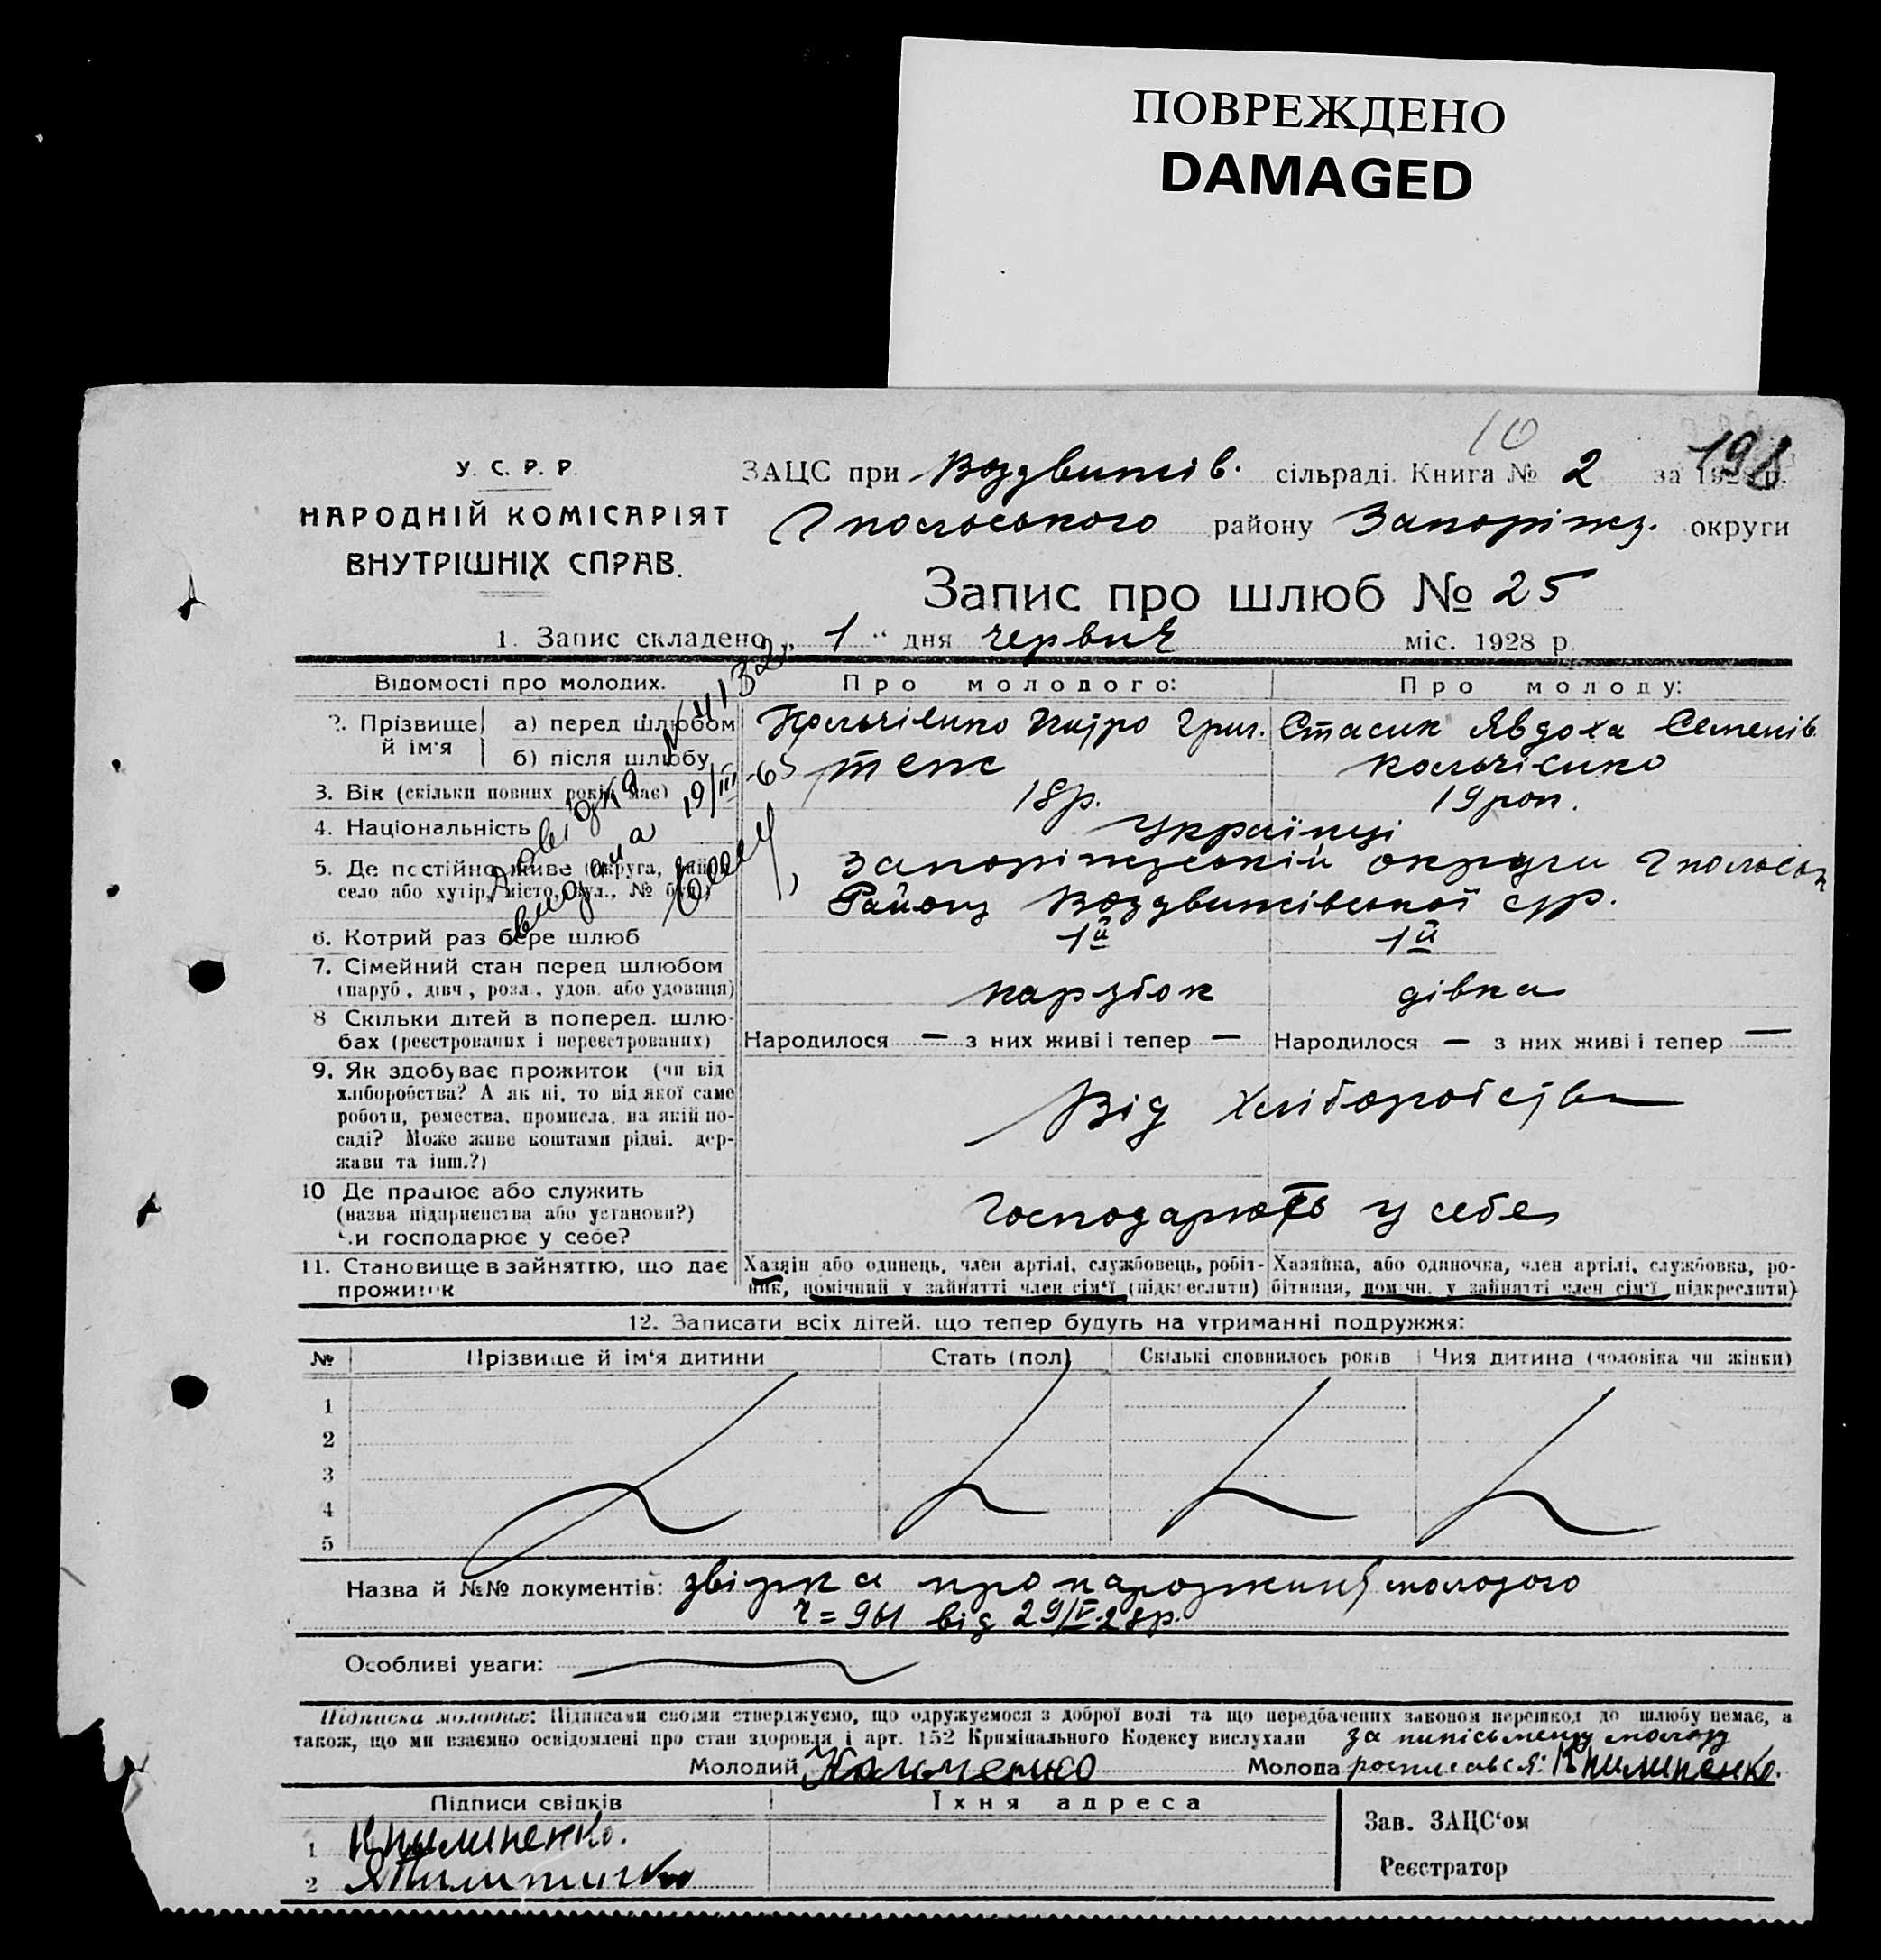 ПОВРЕЖДЕНО
DAMAGED
10
У. С. Р. Р.
НАРОДНІЙ КОМІСАРІЯТ
ВНУТРІШНІХ СПРАВ.
ЗАЦС при Воздвижів. сільраді. Книга № 2 за 1928 р.
Гполовського району Запоріжз. округи
Запис про шлюб № 25
1. Запис складено „ 1 “ дня червня міс. 1928 р.
Відомості про молодих.
Про молодого:
Про молоду:
2. Прізвище й ім'я
а) перед шлюбом
Кольчіенко Петро Григ.
Стасик Явдоха Семенів
б) після шлюбу
теж
Кольчіенко
3. Вік (скільки повних років має)
18р.
19 рок.
4. Національність
Українці
5. Де постійно живе (округа, район, село або хутір, місто, вул., № буд.)
Запоріжзській округи
Району Воздвижівської с/р.
Довідка видана 19/III-65
6. Котрий раз бере шлюб
1й
1й
7. Сімейний стан перед шлюбом
(паруб., дівч., розл., удов. або удовиця)
парубок
дівка
8 Скільки дітей в поперед. шлю-
бах (реєстрованих і нереєстрованих)
Народилося — з них живі і тепер —
Народилося — з них живі і тепер —
9. Як здобуває прожиток (чи від
хліборобства? А як ні, то від якої саме
роботи, ремества, промисла, на якій по-
саді? Може живе коштами рідні, дер-
жави та інш.?)
Від хліборобства
10 Де працює або служить
(назва підприємства або установи?)
Чи господарює у себе?
Господарюють у себе
11. Становище в зайнятю, що дає
прожиток
Хазяїн або одинець, член артілі, службовець, робіт-
ник, помічний у зайнятті член сім'ї (підкреслити)
Хазяйка, або одиночка, член артілі, службовка, ро-
бітниця, помічн. у зайнятті член сім'ї підкреслити)
12. Записати всіх дітей, що тепер будуть на утриманні подружжя:
№ Прізвище й ім'я дитини Стать (пол) Скількі сповнилось років Чия дитина (чоловіка чи жінки)
1
2
3
4
5
Назва й №№ документів: звірка про нарождення молодого
від 29/V-28р.
Особливі уваги:
Підписка молодих: Підписами своїми стверджуємо, що одружуємося з доброї волі та що передбачених законом перешкод до шлюбу немає, а
також, що ми взаємно освідомлені про стан здоровля і арт. 152 Кримінального Кодексу вислухали
за неписьменну молоду
Молодий Кольченко Молода росписався: Кпилипенко.
Підписи свідків
Їхня адреса
1 Кпилипенко.
2 ЯПилипенко
Зав. ЗАЦС'ом
Реєстратор